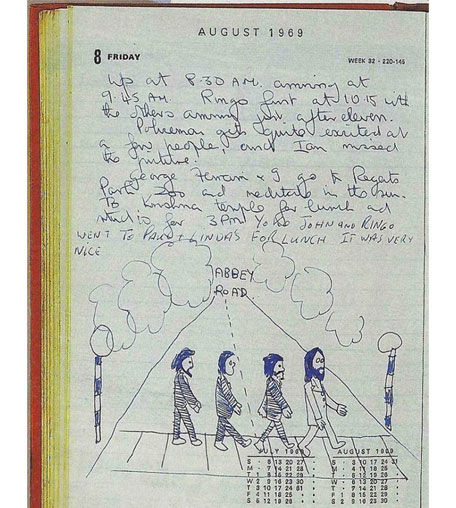 AUGUST 1969
8 FRIDAY
WEEK 32 · 220-145
Up at 8.30 AM. arriving at
9.45 AM. Ringo first at 10.15 with
the others arriving after eleven.
Policeman gets quite excited at
a few people, and Iain missed
the picture.
George & I go to Regents
Park Zoo and meditate in the sun.
To Krishna temple for lunch and
studio for 3 PM YOKO JOHN AND RINGO
WENT TO PAUL & LINDAS FOR LUNCH IT WAS VERY
NICE
ABBEY
ROAD.
JULY 1969
S · 6 13 20 27
M · 7 14 21 28
T 1 8 15 22 29
W 2 9 16 23 30
T 3 10 17 24 31
F 4 11 18 25 ·
S 5 12 19 26 ·
AUGUST 1969
S · 3 10 17 24 31
M · 4 11 18 25
F 1 8 15 22 29
S 2 9 16 23 30